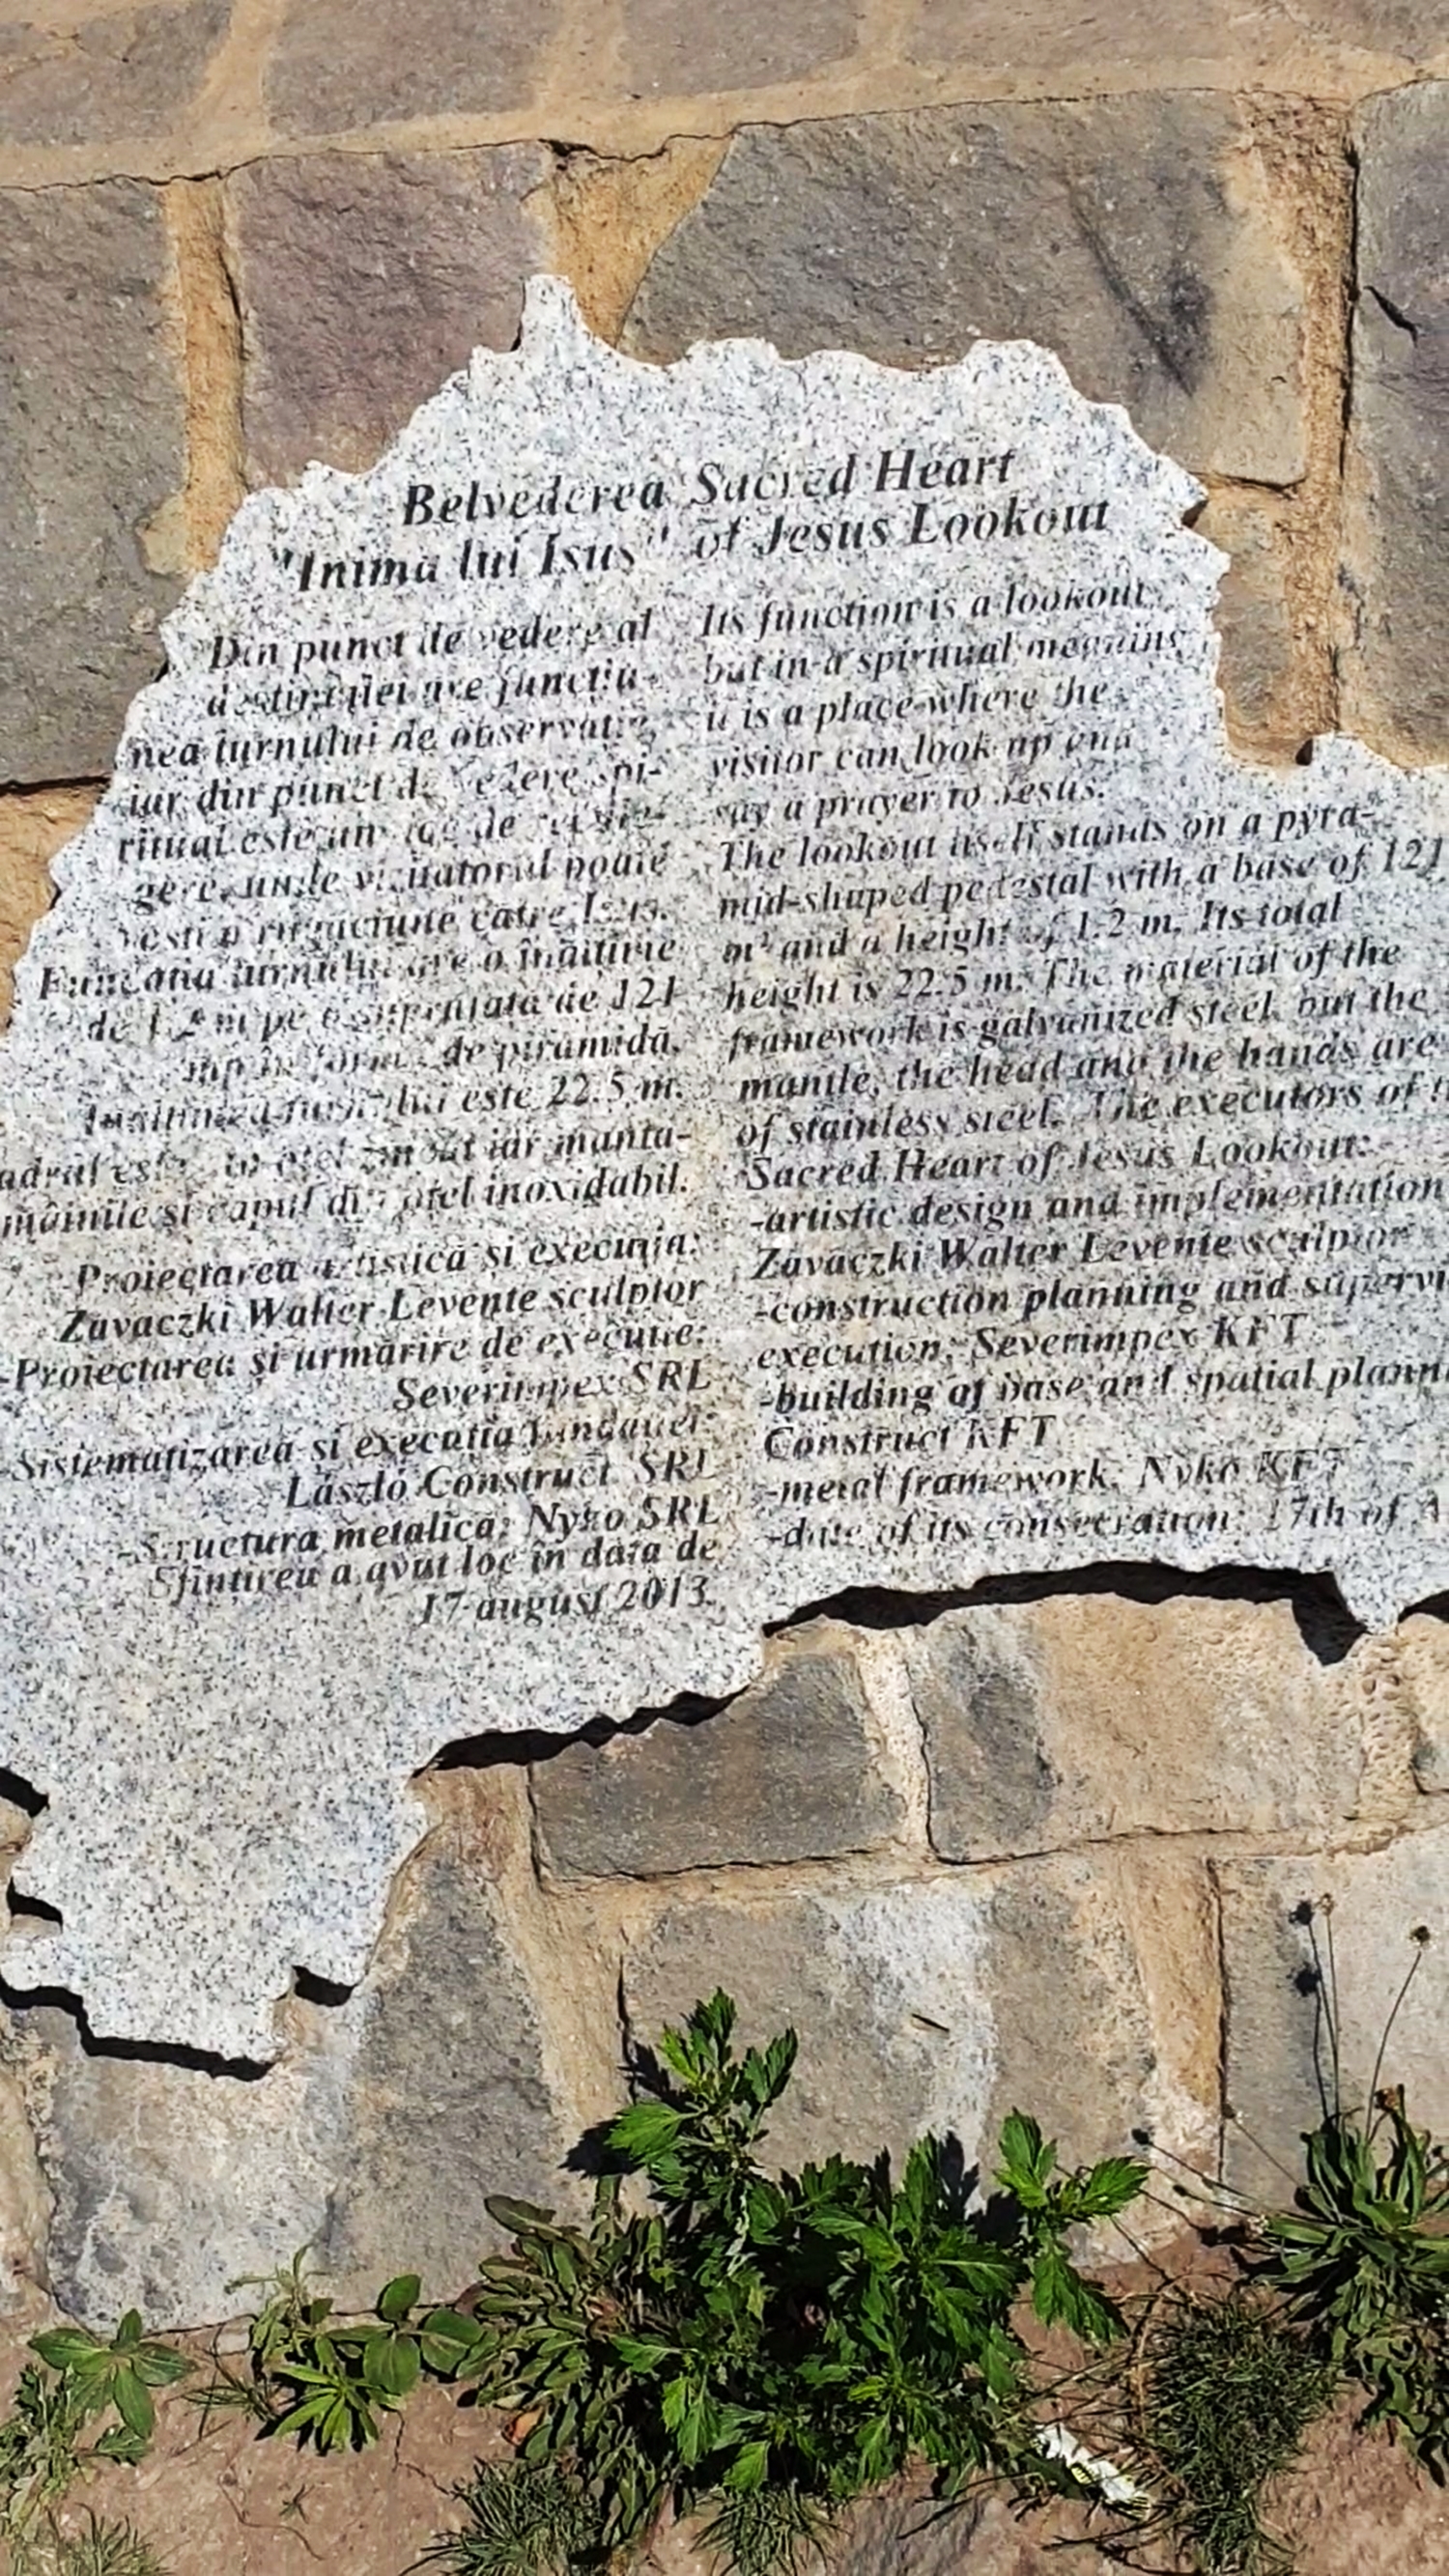 Belvederea
"Inima lui Isus"
Din punct de vedere al
destinației are funcțiu-
nea turnului de observație,
iar din punct de vedere spi-
ritual este un loc de
unde vizitatorul poate
rugăciune către Isus.
turnului are o înălțime
de 1,2 m pe o suprafață de 121
mp în formă de piramidă.
Înălțimea turnului este 22.5 m.
este din oțel iar manta-
mâinile și capul din oțel inoxidabil.
Proiectarea artistică și execuția:
Zavaczki Walter Levente sculptor
-Proiectarea și urmărire de execuție:
Severimpex SRL
Sistematizarea și execuția fundației:
László Construct SRL
-Structura metalică: Nyko SRL
Sfințirea a avut loc în data de
17 august 2013.
Sacred Heart
of Jesus Lookout
Its function is a lookout,
but in a spiritual meaning
it is a place where the
visitor can look up and
say a prayer to Jesus.
The lookout itself stands on a pyra-
mid-shaped pedestal with a base of 121
m² and a height of 1.2 m. Its total
height is 22.5 m. The material of the
framework is galvanized steel, but the
mantle, the head and the hands are
of stainless steel. The executors of
Sacred Heart of Jesus Lookout:
-artistic design and implementation
Zavaczki Walter Levente sculptor
-construction planning and
execution: Severimpex KFT
-building of base and spatial
Construct KFT
-metal framework: Nyko KFT
-date of its consecration: 17th of